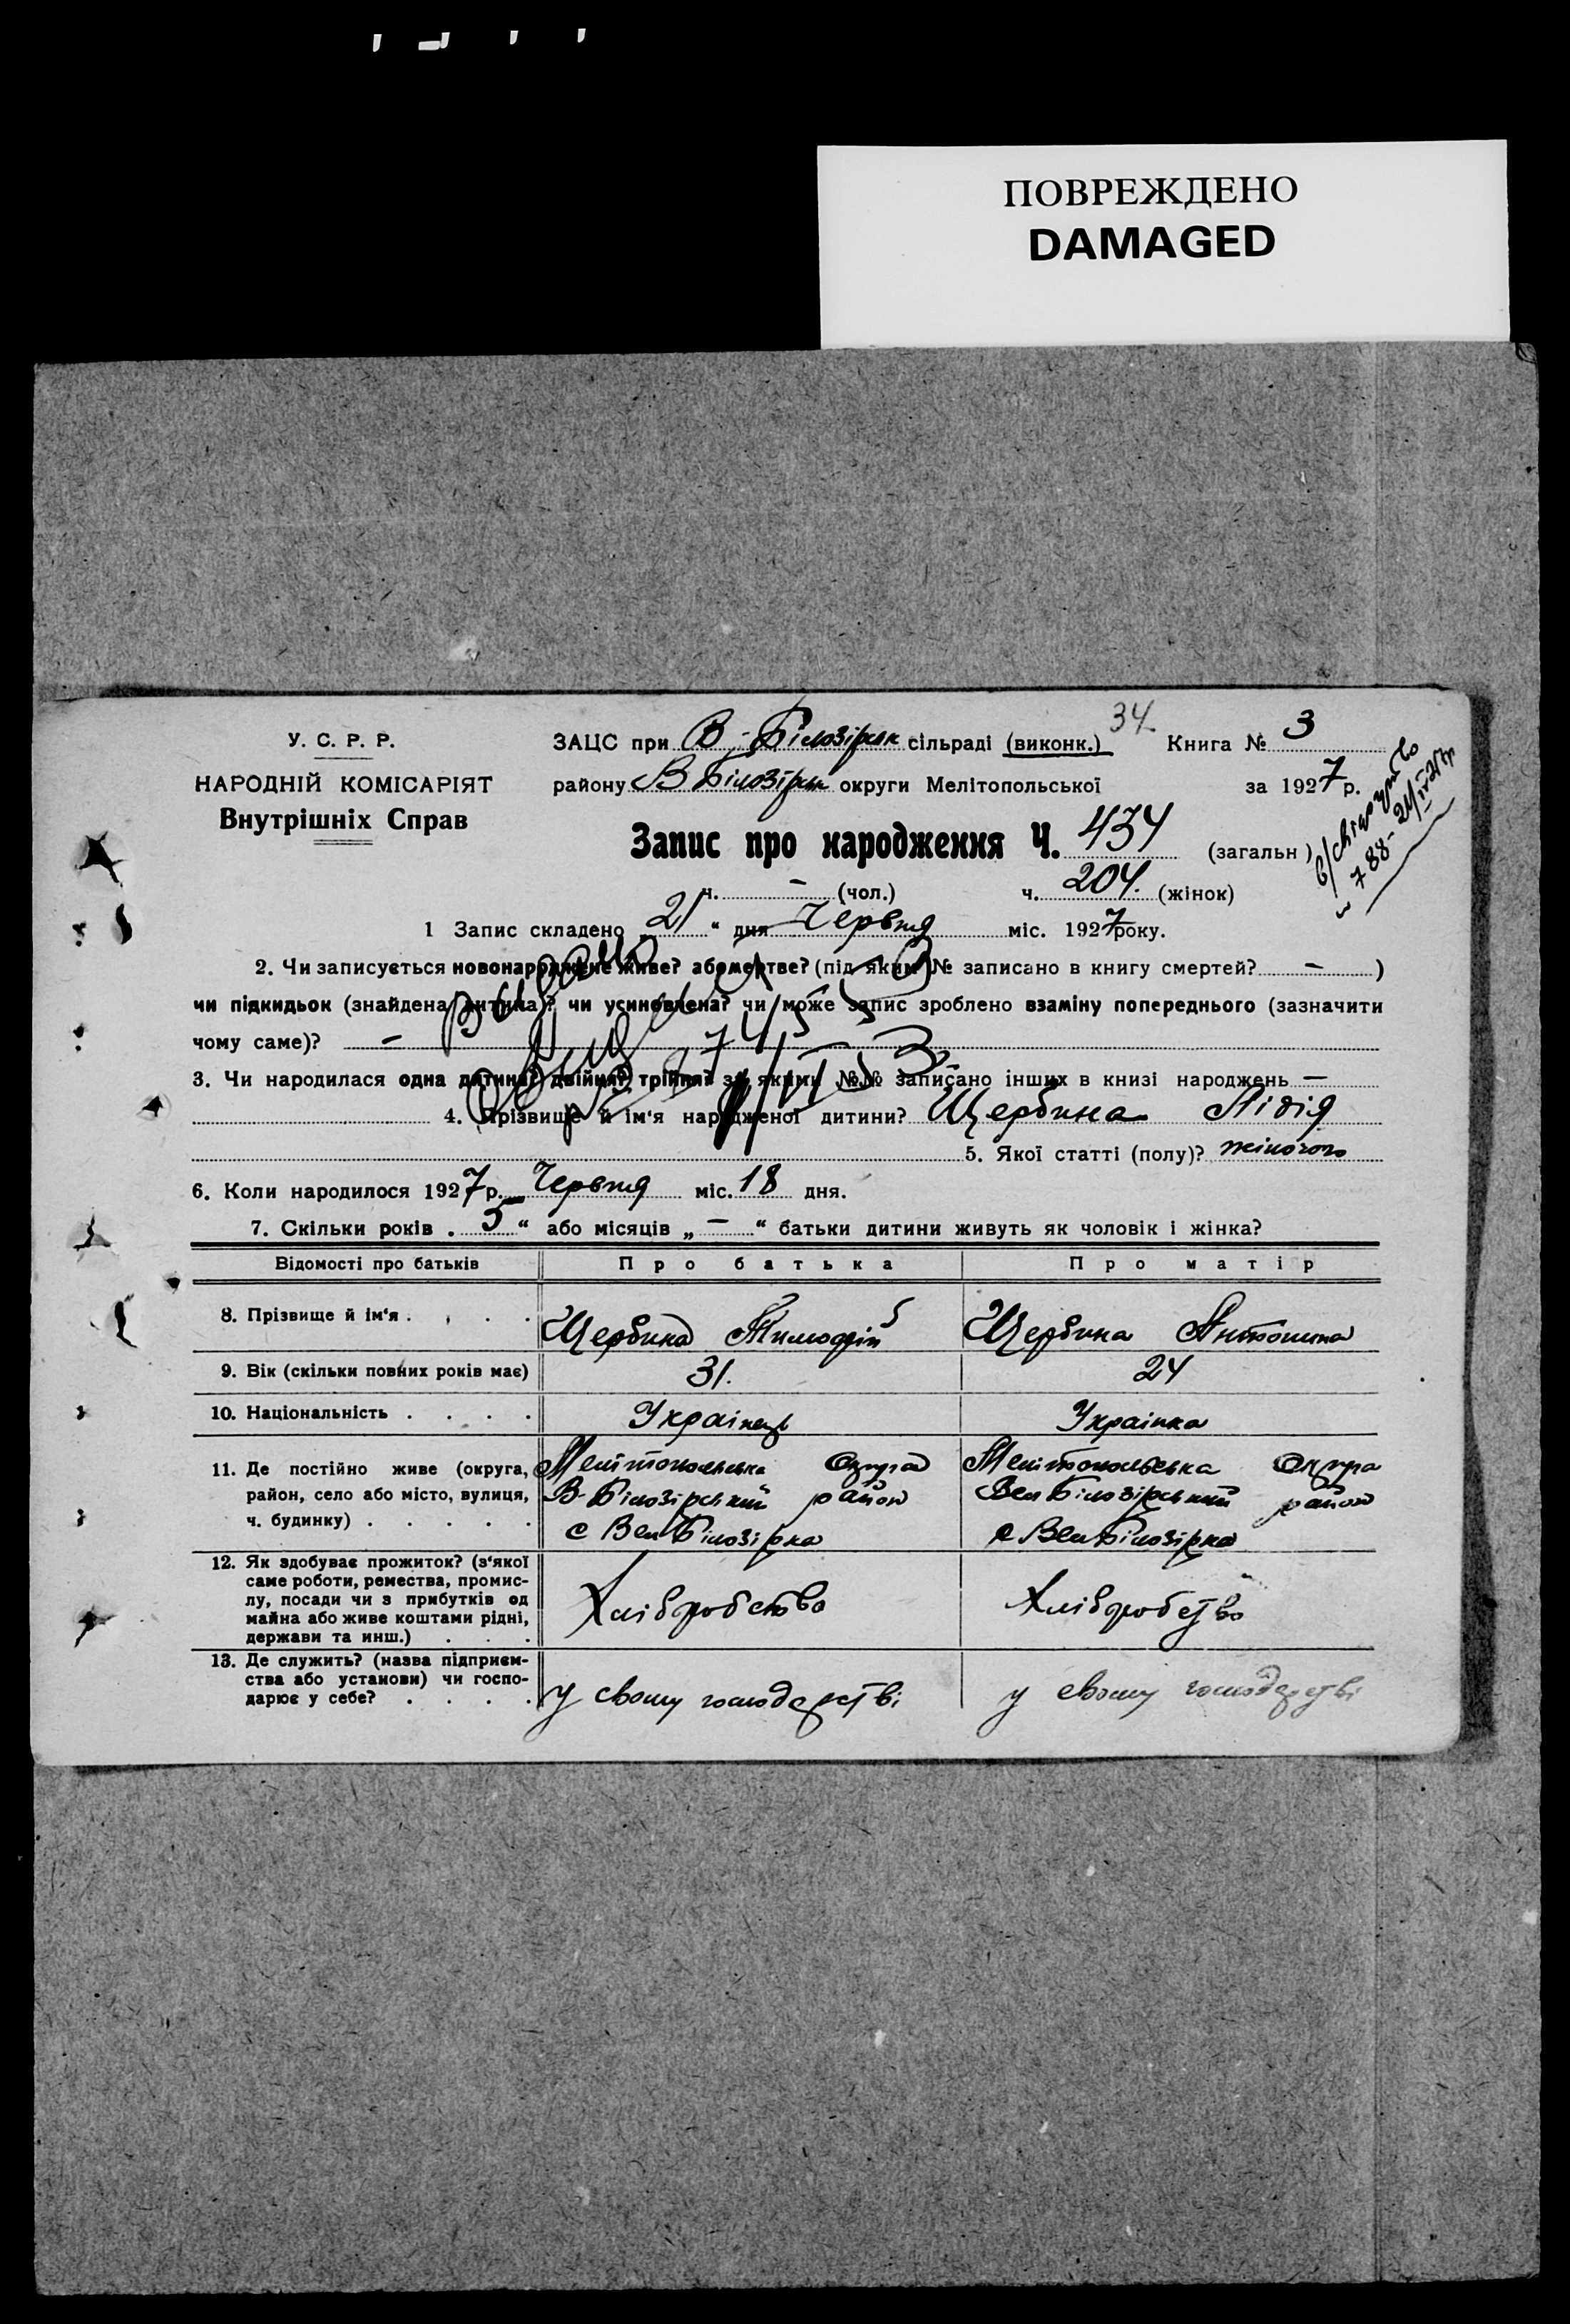 ПОВРЕЖДЕНО
DAMAGED
34
У. С. Р. Р.
НАРОДНІЙ КОМІСАРІЯТ
Внутрішніх Справ
ЗАЦС при В-Білозірськ сільраді (виконк.) Книга № 3
району В Білозірськ округи Мелітопольської за 1927 р.
Запис про народження Ч. 434 (загальн)
ч. — (чол.) ч. 204. (жінок)
788-
1 Запис складено 21 " дня Червня міс. 1927 року.
2. Чи записується новонароджене живе? або мертве? (під яким № записано в книгу смертей? — )
чи підкидьок (знайдена дитина)? чи усиновлена? чи може запис зроблено взаміну попереднього (зазначити
чому саме)? —
3. Чи народилася одна дитина? двійня? трійня? за якими №№ записано інших в книзі народжень —
4. Прізвище й ім'я народженої дитини? Щербина Лідія
5. Якої статті (полу)? жіночого
6. Коли народилося 1927 р. Червня міс. 18 дня.
7. Скільки років . 5 " або місяців „ — " батьки дитини живуть як чоловік і жінка?
Відомості про батьків Про батька Про матір
8. Прізвище й ім'я . . . . Щербина Тимофій Щербина Антонина
9. Вік (скільки повних років має) 31. 24
10. Національність . . . . Українець Українка
11. Де постійно живе (округа, Мелітопольська Округа Мелітопольська Округа
район, село або місто, вулиця, В-Білозірський район Вел Білозірський район
ч. будинку) . . . . . с Вел Білозірка с Вел Білозірка
12. Як здобуває прожиток? (з'якої
саме роботи, ремества, промис-
лу, посади чи з прибутків од Хліборобство Хліборобство
майна або живе коштами рідні,
держави та инш.) . . .
13. Де служить? (назва підприєм-
ства або установи) чи госпо-
дарює у себе? . . . . у свому господарстві у свому господарстві